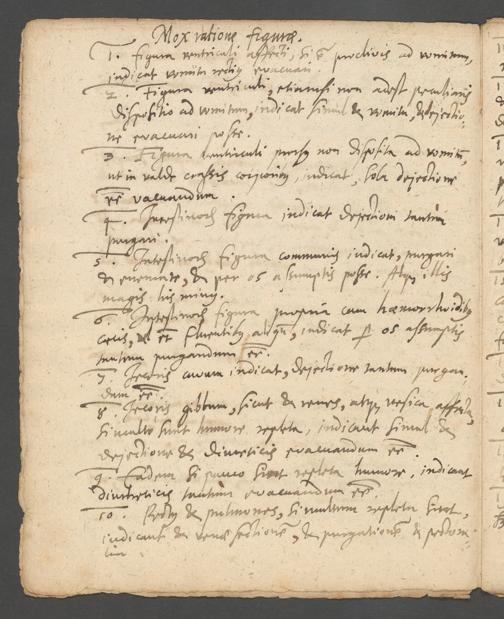 Mox ratione figuræ.
1. Figura ventriculi affecti, si est proclivis ad vomitum,
indicat vomitu rectius evacuari.
2. Figura ventriculi, etiamsi non adest peculiaris
dispositio ad vomitum, indicat simul & vomitu, & dejectio-
ne evacuari posse.
3. Figura ventriculi prorsus non disposita ad vomitum,
ut in valde crassis corporibus, indicat, sola dejectione
vacuandum.
4. Intestinorum figura indicat dejectioni tantum
purgari.
5. Intestinorum figura communis indicat, purgari
& enemate, & per os assumptis posse. Atque illis
magis his minus.
6. Intestinorum figura propria cum hæmorrhoidibus
indicat per os assumptis
tantum purgandum esse.
7. Jecoris cavum indicat, dejectione tantum purgan-
dum esse.
8. Jecoris gibbum, sicut & renes, atque vesica affecta,
si multo sunt humore repleta, indicant simul &
dejectione & diureticis evacuandum esse.
9. Eadem si pauco sint repleta humore, indicant
diureticis tantum evacuandum esse.
10. & pulmones, si multum repleta sint,
indicant & venæ sectionem, & purgationem & pectora-
lia